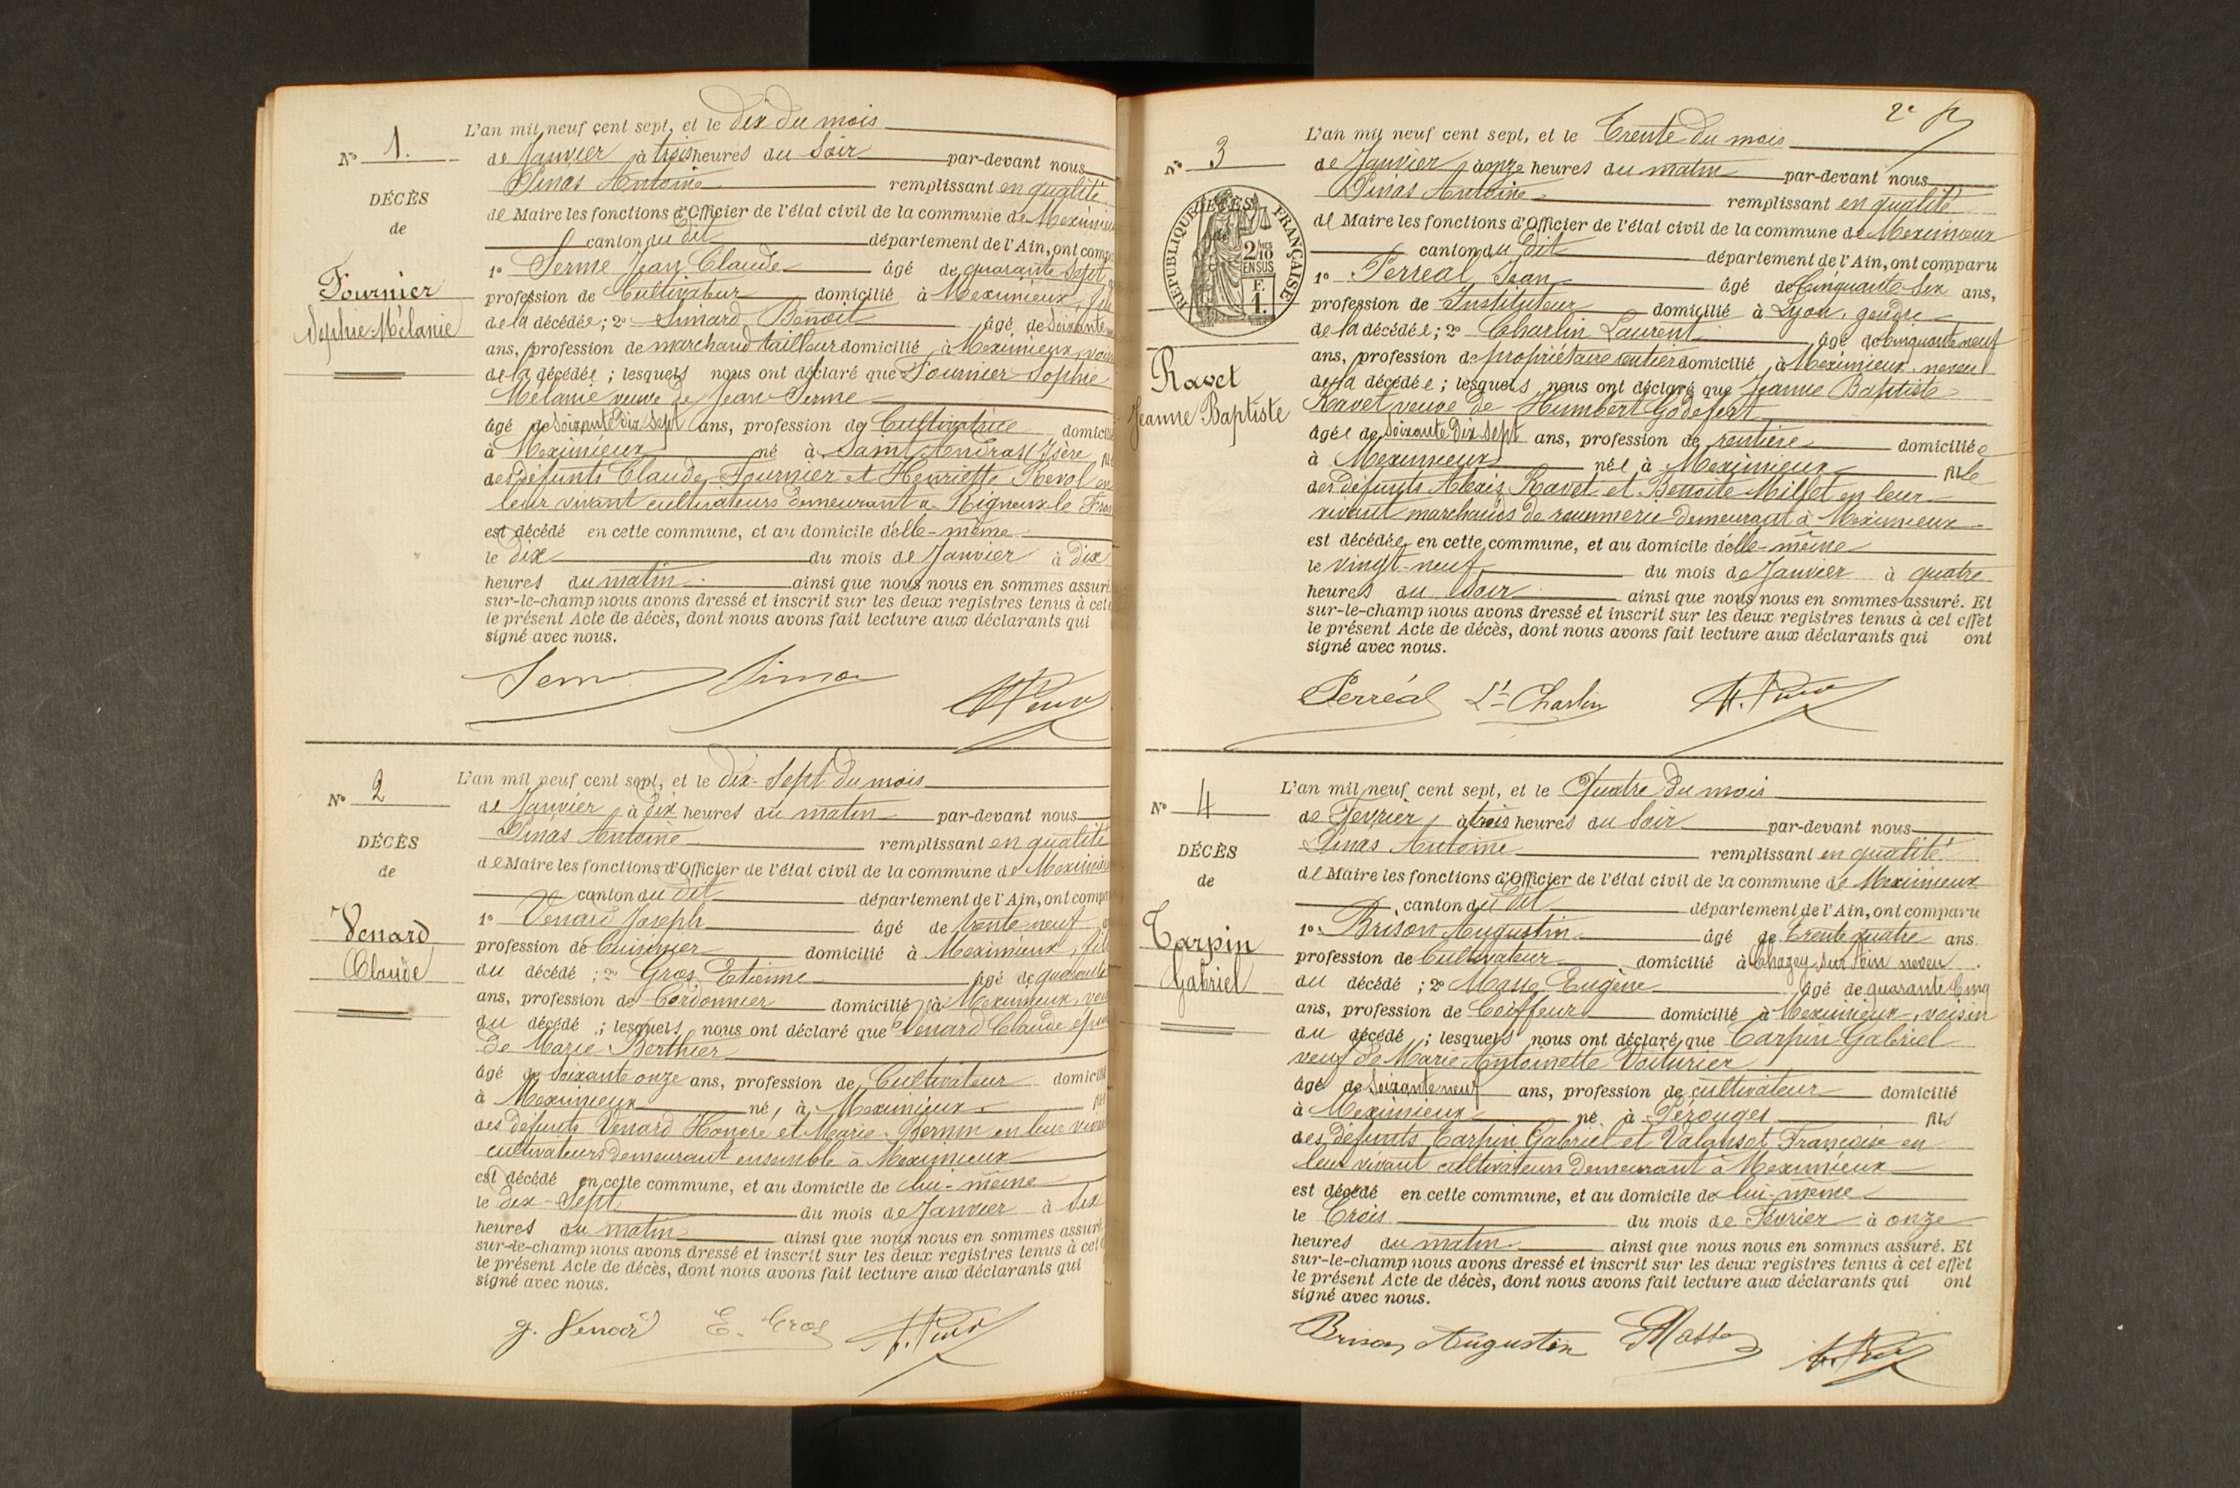 N° 1.
DÉCÈS
de
Fournier
Sophie Mélanie
L'an mil neuf cent sept, et le dix du mois
de Janvier à trois heures du soir par-devant nous
Pinas Antoine remplissant en qualité
de Maire les fonctions d'Officier de l'état civil de la commune de Meximieu
canton du dit département de l'Ain, ont comp
1° Serme Jean Claude âgé de quarante sept
profession de Cultivateur domicilié à Meximieux, fils
de la décédée; 2° Simard Benoit âgé de soixante
ans, profession de marchand tailleur domicilié à Meximieux, voisin
de la décédée; lesquels nous ont déclaré que Fournier Sophie
Mélanie veuve de Jean Serme
âgé de soixante dix sept ans, profession de Cultivatrice domicilié
à Meximieux né à Saint Andras (Isère
des défunts Claude Fournier et Henriette Revol en
leur vivant cultivateurs demeurant à Rigneux le Fran
est décédé en cette commune, et au domicile d'elle-même
le dix du mois de Janvier à dix
heures du matin ainsi que nous nous en sommes assuré
sur-le-champ nous avons dressé et inscrit sur les deux registres tenus à cet
le présent Acte de décès, dont nous avons fait lecture aux déclarants qui
signé avec nous.
N° 2
DÉCÈS
de
Venard
Claude
L'an mil neuf cent sept, et le dix-sept du mois
de Janvier à dix heures du matin par-devant nous
Pinas Antoine remplissant en qualité
de Maire les fonctions d'Officier de l'état civil de la commune de Meximieu
canton du dit département de l'Ain, ont compa
1° Venard Joseph âgé de trente neuf
profession de Cuisinier domicilié à Meximieux, fils
du décédé; 2° Gros Etienne âgé de quarante
ans, profession de Cordonnier domicilié à Meximieux, voi
du décédé; lesquels nous ont déclaré que Venard Claude époux
de Marie Berthier
âgé de soixante onze ans, profession de Cultivateur domicilié
à Meximieux né, à Meximieux fils
des défunts Venard Honoré et Marie Bernin en leur vivant
cultivateurs demeurant ensemble à Meximieux
est décédé en cette commune, et au domicile de lui-même
le dix-sept du mois de Janvier à six
heures du matin ainsi que nous nous en sommes assuré
sur-le-champ nous avons dressé et inscrit sur les deux registres tenus à cet
le présent Acte de décès, dont nous avons fait lecture aux déclarants qui
signé avec nous.
J. Venard E. Gros
2e
N° 3
RÉPUBLIQUE FRANÇAISE
2/10
EN SUS
F.
1.
Ravet
Jeanne Baptiste
L'an mil neuf cent sept, et le Trente du mois
de Janvier à onze heures du matin par-devant nous
Pinas Antoine remplissant en qualité
de Maire les fonctions d'Officier de l'état civil de la commune de Meximieux
canton du dit département de l'Ain, ont comparu
1° Perréal Jean âgé de Cinquante six ans,
profession de Instituteur domicilié à Lyon, gendre
de la décédée; 2° Charlin Laurent âgé de cinquante neuf
ans, profession de propriétaire rentier domicilié à Meximieux, neveu
de la décédée; lesquels nous ont déclaré que Jeanne Baptiste
Ravet veuve de Humbert Godefert
âgée de soixante dix sept ans, profession de rentière domiciliée
à Meximieux née à Meximieux fille
des défunts Alexis Ravet et Benoite Millet en leur
vivant marchands de rouennerie demeurant à Meximieux
est décédée en cette commune, et au domicile d'elle-même
le vingt-neuf du mois de Janvier à quatre
heures du soir ainsi que nous nous en sommes assuré. Et
sur-le-champ nous avons dressé et inscrit sur les deux registres tenus à cet effet
le présent Acte de décès, dont nous avons fait lecture aux déclarants qui ont
signé avec nous.
Perréal Lt Charlin
N° 4
DÉCÈS
de
Carpin
Gabriel
L'an mil neuf cent sept, et le Quatre du mois
de Février à trois heures du soir par-devant nous
Pinas Antoine remplissant en qualité
de Maire les fonctions d'Officier de l'état civil de la commune de Meximieux
canton du dit département de l'Ain, ont comparu
1° Brison Augustin âgé de trente quatre ans.
profession de Cultivateur domicilié à Chazey sur Ain neveu
du décédé; 2° Masse Eugène âgé de quarante cinq
ans, profession de Coiffeur domicilié à Meximieux, voisin
du décédé; lesquels nous ont déclaré que Carpin Gabriel
veuf de Marie Antoinette Voiturier
âgé de soixante neuf ans, profession de cultivateur domicilié
à Meximieux né à Pérouges fils
des défunts Carpin Gabriel et Valansot Françoise en
leur vivant cultivateurs demeurant à Meximieux
est décédé en cette commune, et au domicile de lui-même
le Trois du mois de Février à onze
heures du matin ainsi que nous nous en sommes assuré. Et
sur-le-champ nous avons dressé et inscrit sur les deux registres tenus à cet effet
le présent Acte de décès, dont nous avons fait lecture aux déclarants qui ont
signé avec nous.
Brison Augustin EMasse